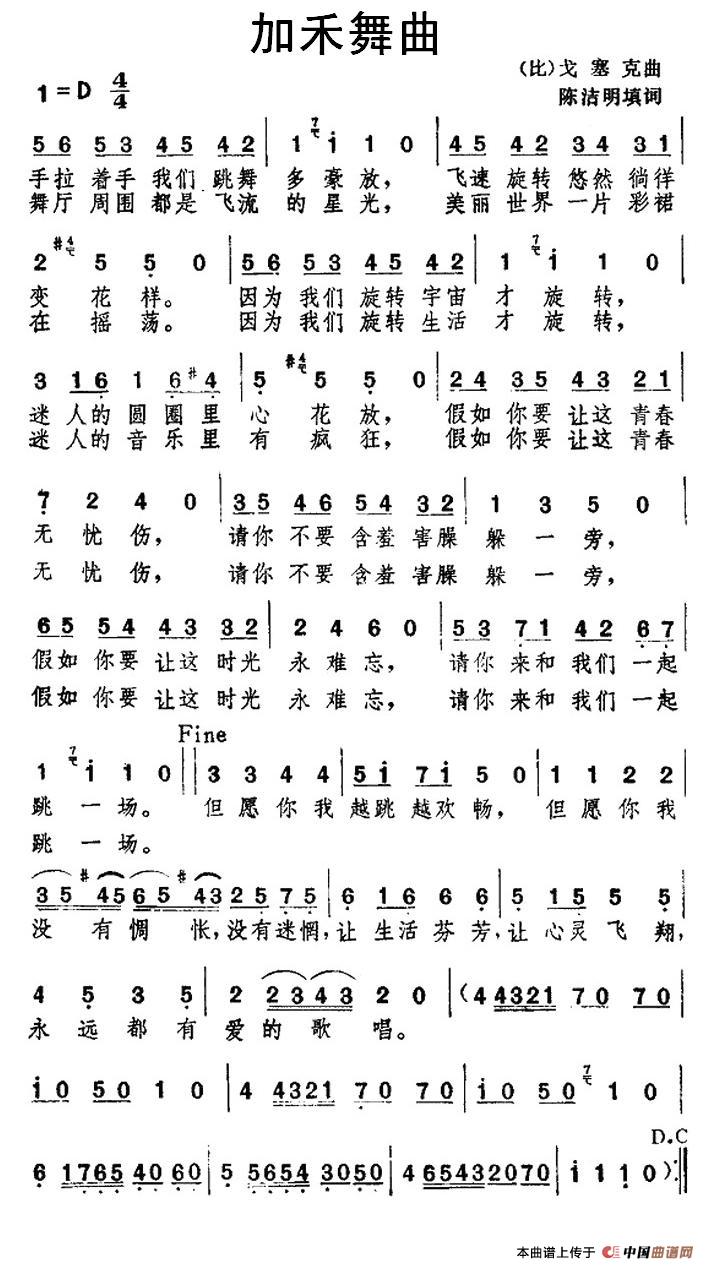 加禾舞曲
1=D 4/4
（比）戈 塞 克曲
陈洁明填词
5 6 5 3 4 5 4 2 | 1 i 1 0 | 4 5 4 2 3 4 3 1 |
手拉着手我们跳舞多豪放，飞速旋转悠然徜徉
舞厅周围都是飞流的星光，美丽世界一片彩裙
2 5 5 0 | 5 6 5 3 4 5 4 2 | 1 i 1 0 |
变花样。因为我们旋转宇宙才旋转，
在摇荡。因为我们旋转生活才旋转，
3 1 6 1 6 #4 | 5 5 5 0 | 2 4 3 5 4 3 2 1 |
迷人的圆圈里心花放，假如你要让这青春
迷人的音乐里有疯狂，假如你要让这青春
7 2 4 0 | 3 5 4 6 5 4 3 2 | 1 3 5 0 |
无忧伤，请你不要含羞害臊躲一旁，
无忧伤，请你不要含羞害臊躲一旁，
6 5 5 4 4 3 3 2 | 2 4 6 0 | 5 3 7 1 4 2 6 7 |
假如你要让这时光永难忘，请你来和我们一起
假如你要让这时光永难忘，请你来和我们一起
Fine
1 i 1 0 || 3 3 4 4 | 5 i 7 i 5 0 | 1 1 2 2 |
跳一场。但愿你我越跳越欢畅，但愿你我
跳一场。
3 5 #4 5 6 5 #4 3 | 2 5 7 5 | 6 1 6 6 6 | 5 1 5 5 5 |
没有惆怅，没有迷惘，让生活芬芳，让心灵飞翔，
4 5 3 5 | 2 2 3 4 3 2 0 | (4 4321 7 0 7 0 |
永远都有爱的歌唱。
i 0 5 0 1 0 | 4 4321 7 0 7 0 | i 0 5 0 1 0 |
D.C
6 1765 4 0 6 0 | 5 5654 3 0 5 0 | 4 65432070 | i 1 1 0 ) :||
本曲谱上传于 中国曲谱网